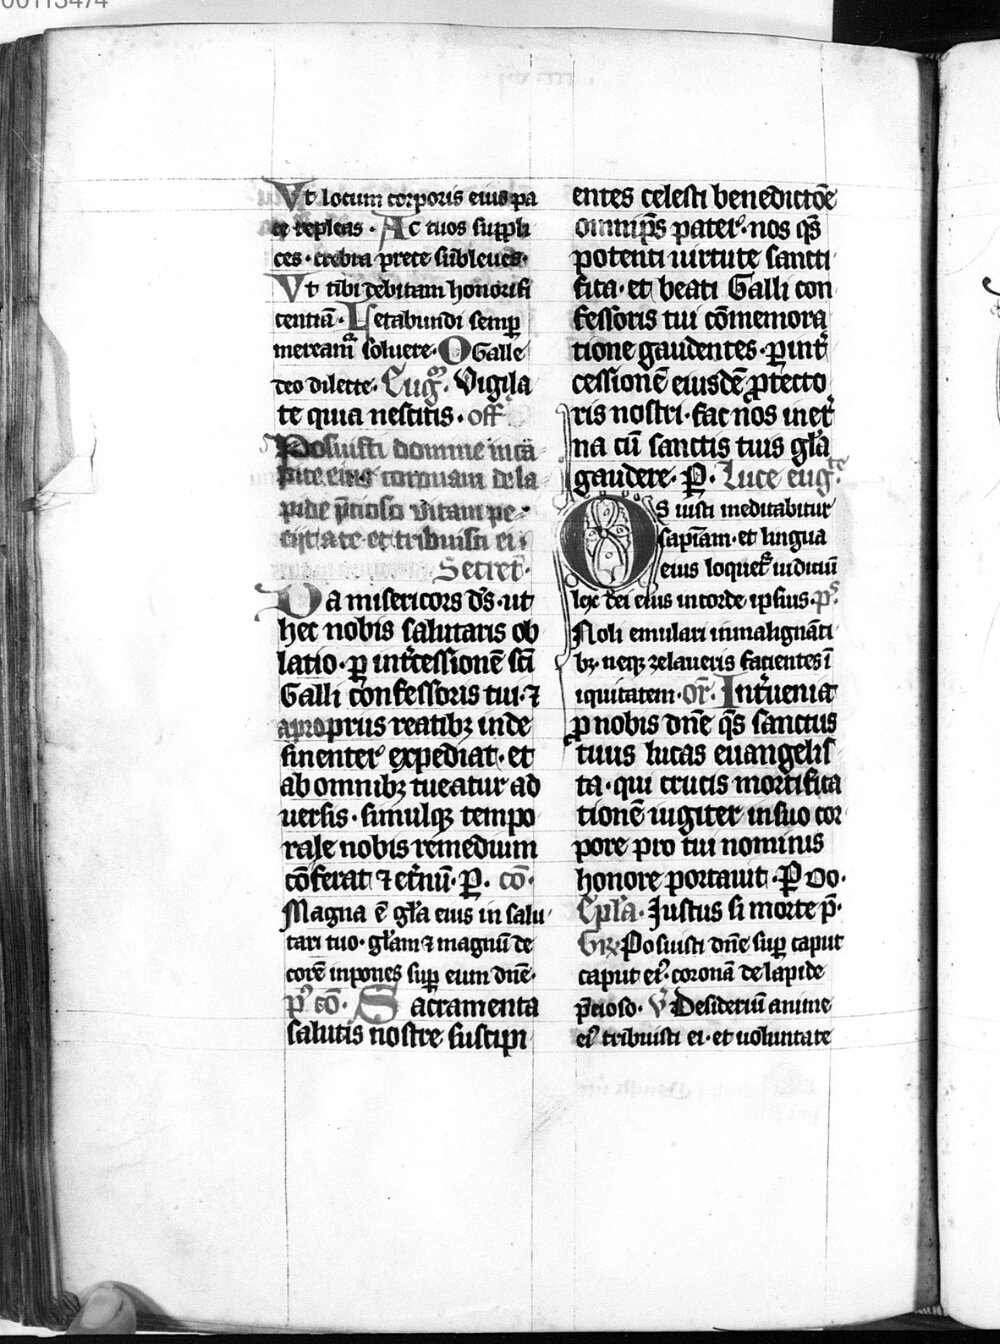 00113474
Vt locum corporis eius pa
ce repleas · Ac tuos suppli
ces · crebra prece subleues ·
Vt tibi debitam honorifi
centiā · Letabundi semꝑ
meream̄ soluere · O Galle
deo dilecte · Eug̅ · Vigila
te quia nescitis · off̅
Posuisti domine in ca
pite eius coronam de la
pide p̄cioso vitam pe ·
ciit a te et tribuisti ei ·
Secret̄ ·
Da misericors d̄s · ut
hec nobis salutaris ob
latio · ꝑ int̄cessionē sc̄i
Galli confessoris tui · ⁊
a propriis reatibꝫ inde
sinenter expediat · et
ab omnibꝫ tueatur ad
uersis · simulqꝫ tempo
rale nobis remedium
cōferat ⁊ et̄nū · P̱ · cō ·
Magna ē gl̄a eius in salu
tari tuo · gl̄am ⁊ magnū de
corē inpones suꝑ eum dn̄e ·
p̄ cō · Sacramenta
salutis nostre suscipi
entes celesti benedictōe
omnip̄s pater · nos q̄s
potenti uirtute sancti
fica · et beati Galli con
fessoris tui cōmemora
tione gaudentes · ꝑ int̄
cessionē eiusdē ꝓtecto
ris nostri · fac nos in et̄
na cū sanctis tuis gl̄a
gaudere · P̱ · Luce eug̅te
Os iusti meditabitur
sapiām · et lingua
eius loquet̄ iudiciū
lex dei eius in corde ipsius · p̄s
Noli emulari in malignāti
bꝫ · neqꝫ zelaueris facientes ī
iquitatem · or̄ · Int̄ueniat
ꝓ nobis dn̄e q̄s sanctus
tuus lucas euangelis
ta · qui crucis mortifica
tionē iugiter in suo cor
pore pro tui nominis
honore portauit · P̱ oo ·
Epl̄a · Justus si morte p̄ ·
Gr̄ Posuisti dn̄e suꝑ caput
caput ei⁹ · coronā de lapide
p̄cioso · V̄ Desideriū anime
ei⁹ tribuisti ei · et uoluntate